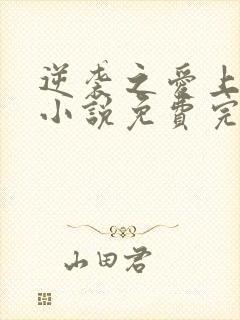 逆袭之愛上
小說免費完
山田君